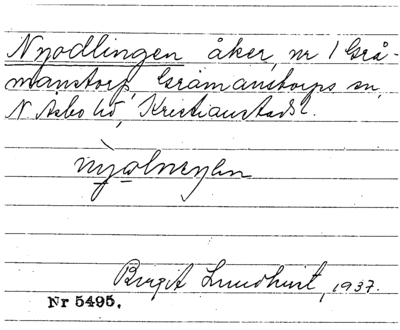 Nyodlingen åker, nr 1 Grå-
manstorp, Gråmanstorps sn,
N. Åsbo hd, Kristianstads l.
Birgit Lundkvist, 1937.
Nr 5495.